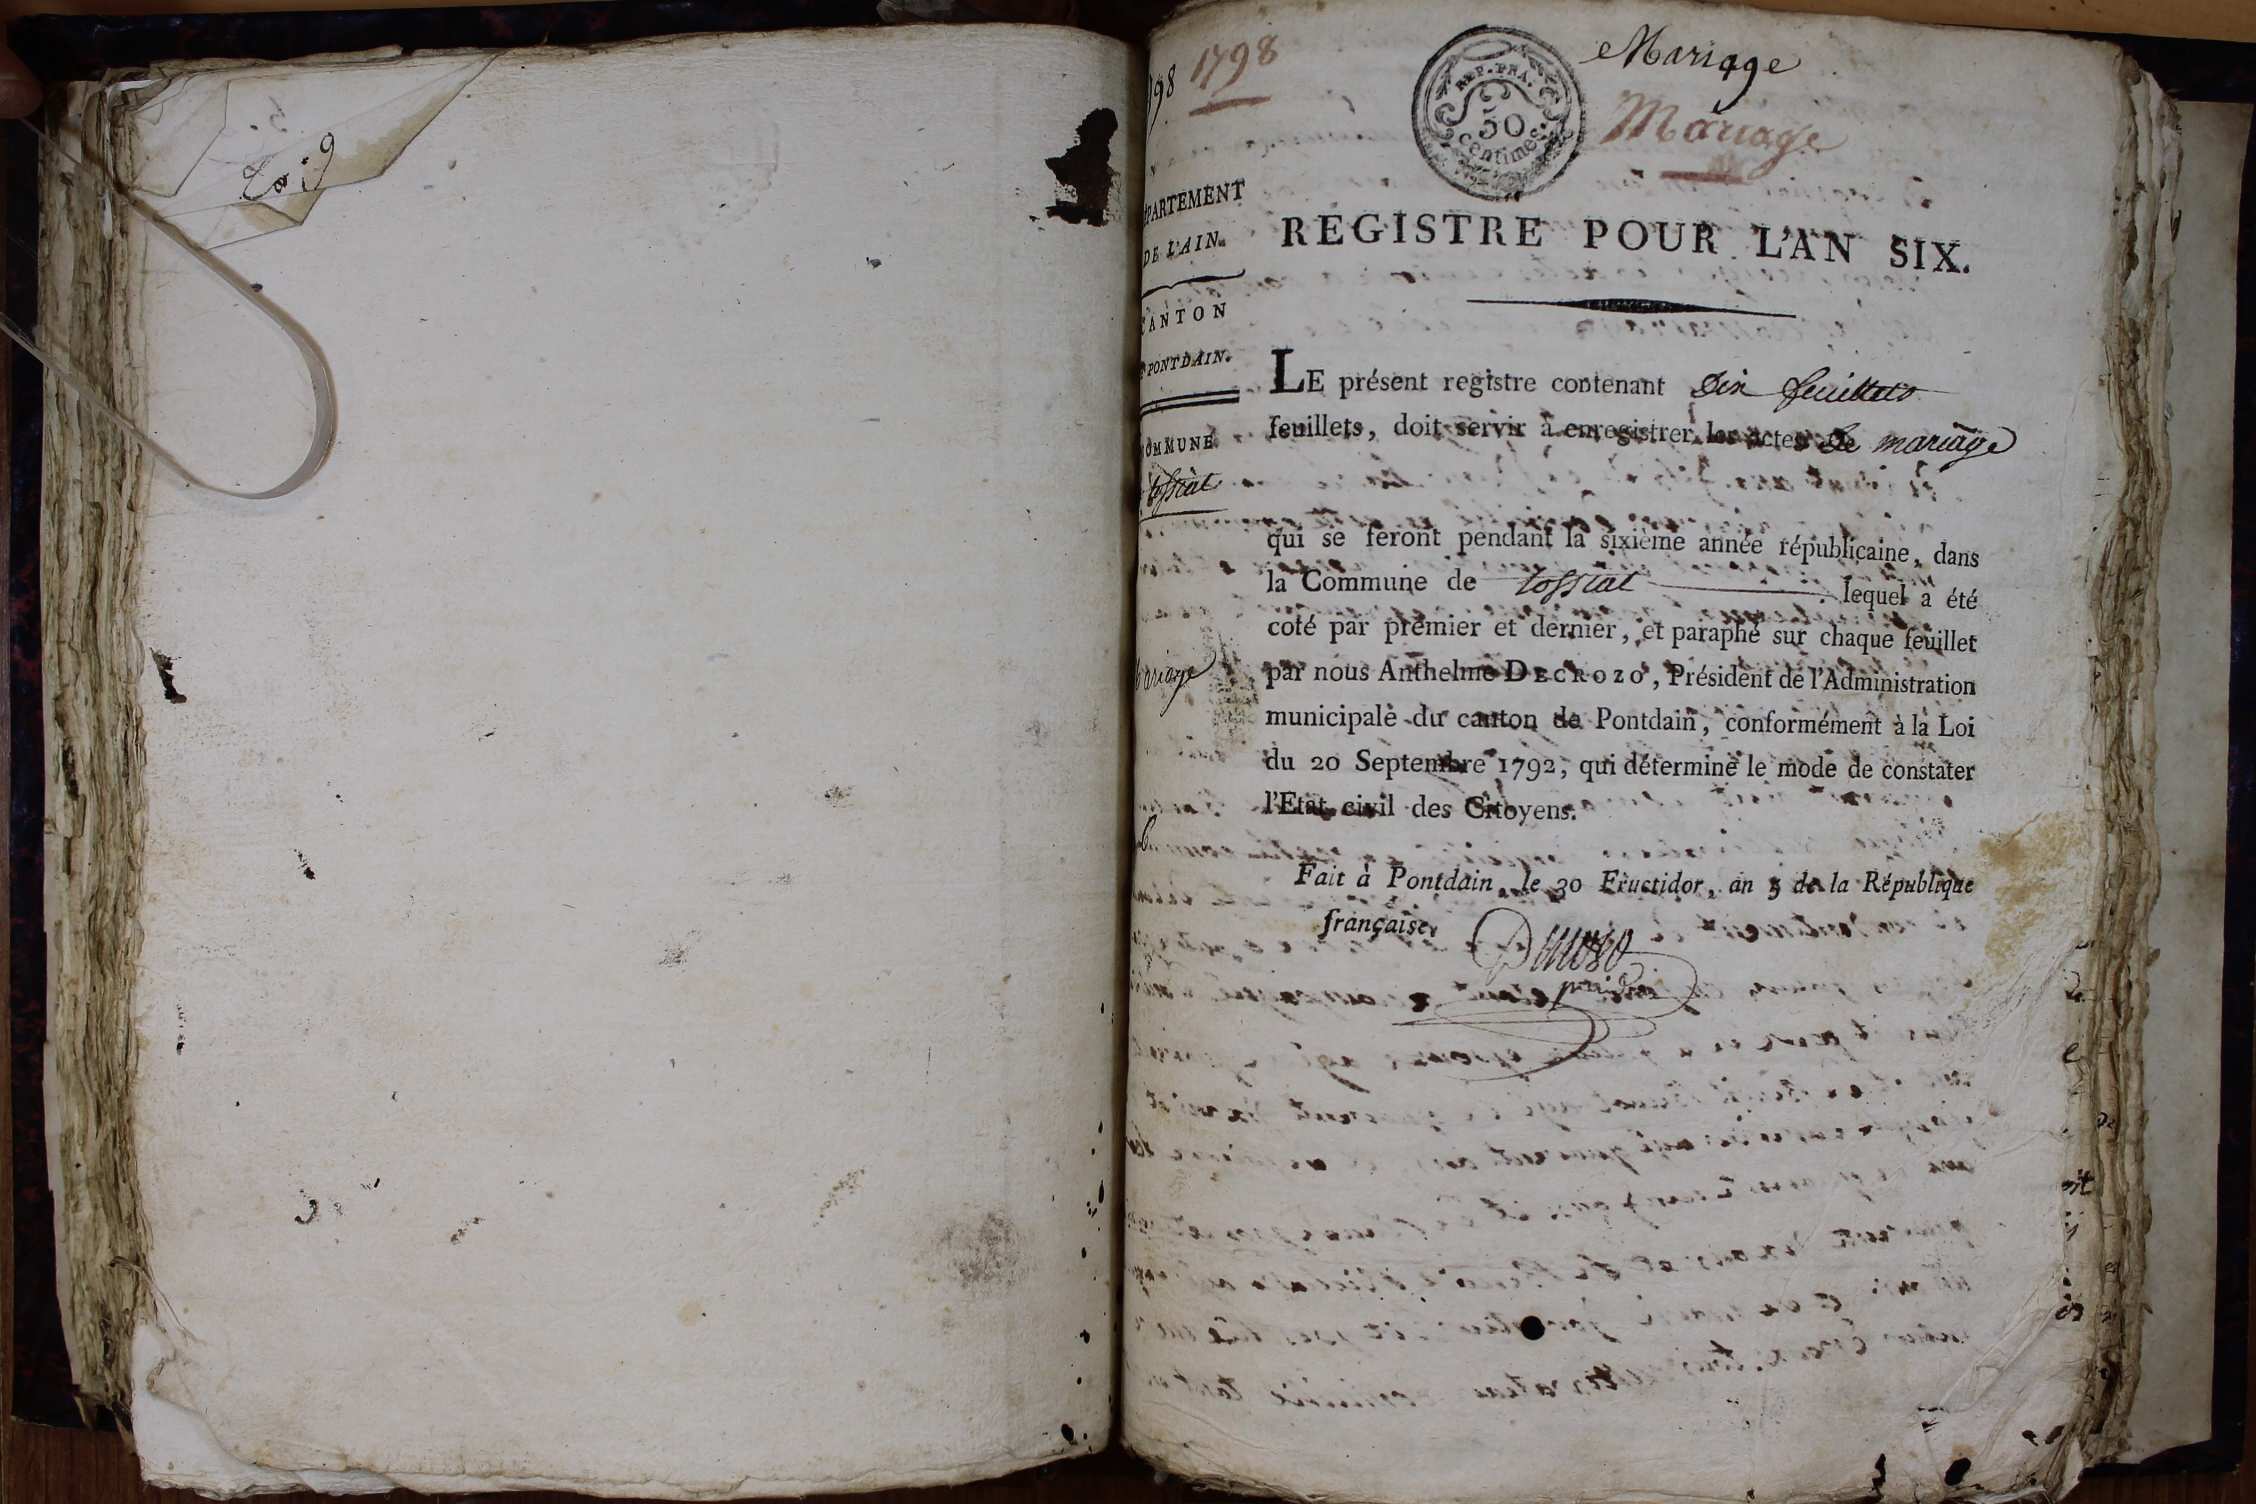 1798
Mariage
Mariage
REP. FRA.
50
Centimes.
ÉPARTEMENT
DE L'AIN.
CANTON
PONTDAIN.
OMMUNE
tossiat
ariage
REGISTRE POUR L'AN SIX.
LE présent registre contenant Dix feuillets
feuillets, doit servir à enregistrer les actes de mariage
qui se feront pendant la sixième année républicaine, dans
la Commune de tossiat lequel a été
coté par premier et dernier, et paraphé sur chaque feuillet
par nous Anthelme DECROZO, Président de l'Administration
municipale du canton de Pontdain, conformément à la Loi
du 20 Septembre 1792, qui détermine le mode de constater
l'Etat civil des Citoyens.
Fait à Pontdain, le 30 Fructidor, an 5 de la République
française.